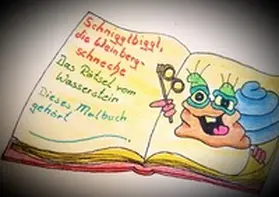 Schniggelbiggl,
die Weinberg-
schnecke
Das Rätsel vom
Wasserstein
Dieses Malbuch
gehört